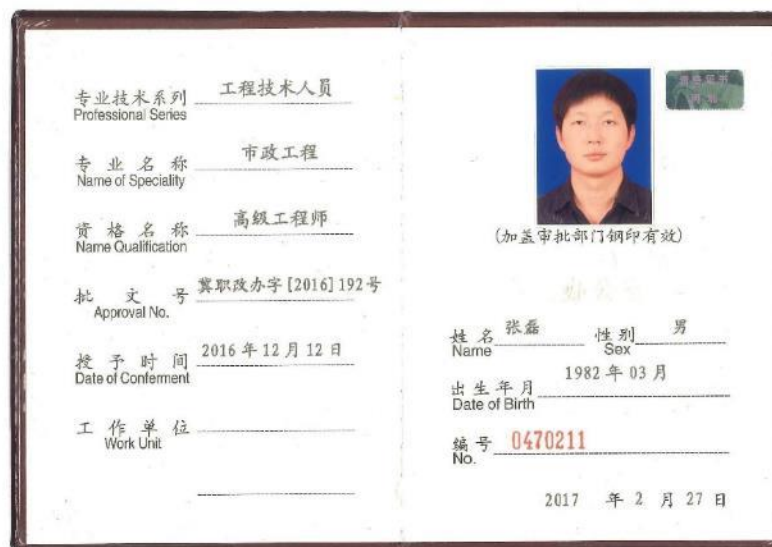 专业技术系列 工程技术人员
Professional Series
专业名称 市政工程
Name of Speciality
资格名称 高级工程师
Name Qualification
批文号 冀职改办字[2016]192号
Approval No.
授予时间 2016年12月12日
Date of Conferment
工作单位
Work Unit
(加盖审批部门钢印有效)
姓名 张磊 性别 男
Name Sex
出生年月 1982年03月
Date of Birth
编号 0470211
No.
2017 年 2 月 27 日